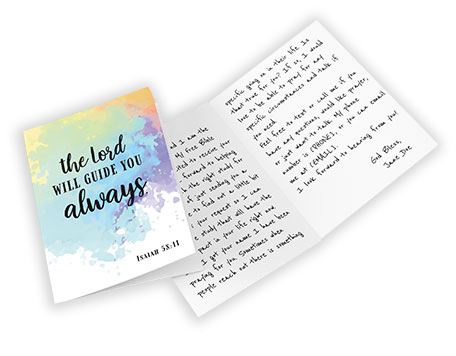 the Lord
WILL GUIDE YOU
always
ISAIAH 58:11
d I am the
My Free Bible
ted to receive your
forward to helping
the right study for
t sending you a
to find out a little bit
your request so I can
e study that will have the
pact in your life right now.
I got your name I have been
praying for you. Sometimes when
people reach out there is something
specific going on in their life. Is
that true for you? If so, I would
love to be able to pray for any
specific circumstances and talk if
you need.
Feel free to text or call me if you
have any questions, would like prayer,
or just want to talk. My phone
number is (PHONE), or you can email
me at (EMAIL).
I love forward to hearing from you!
God Bless,
Jane Doe